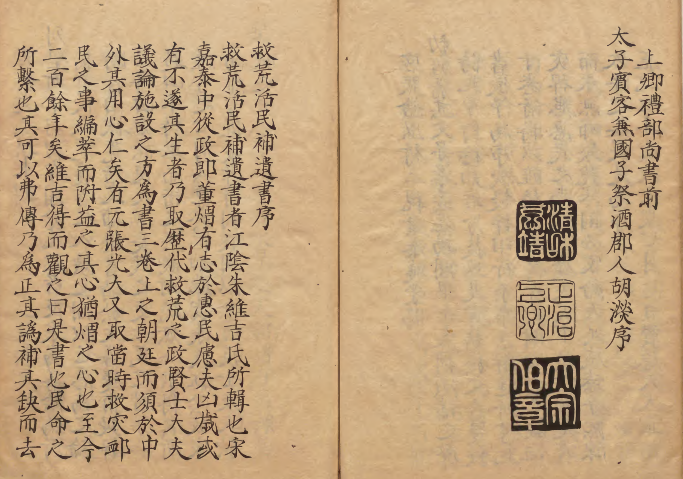 上卿禮部尚書前
太子賓客兼國子祭酒郡人胡濙序
救荒活民補遺書序
救荒活民補遺書者江陰朱維吉氏所輯也宋
嘉泰中從政郎董煟有志於惠民慮夫凶歲或
有不遂其生者乃取歷代救荒之政賢士大夫
議論施設之方為書三卷上之朝廷而頒於中
外其用心仁矣有元張光大又取當時救灾卹
民之事編萃而附益之其心猶煟之心也至今
二百餘年矣維吉得而觀之曰是書也民命之
所繫也其可以弗傳乃為正其譌補其缺而去
大宗
伯章